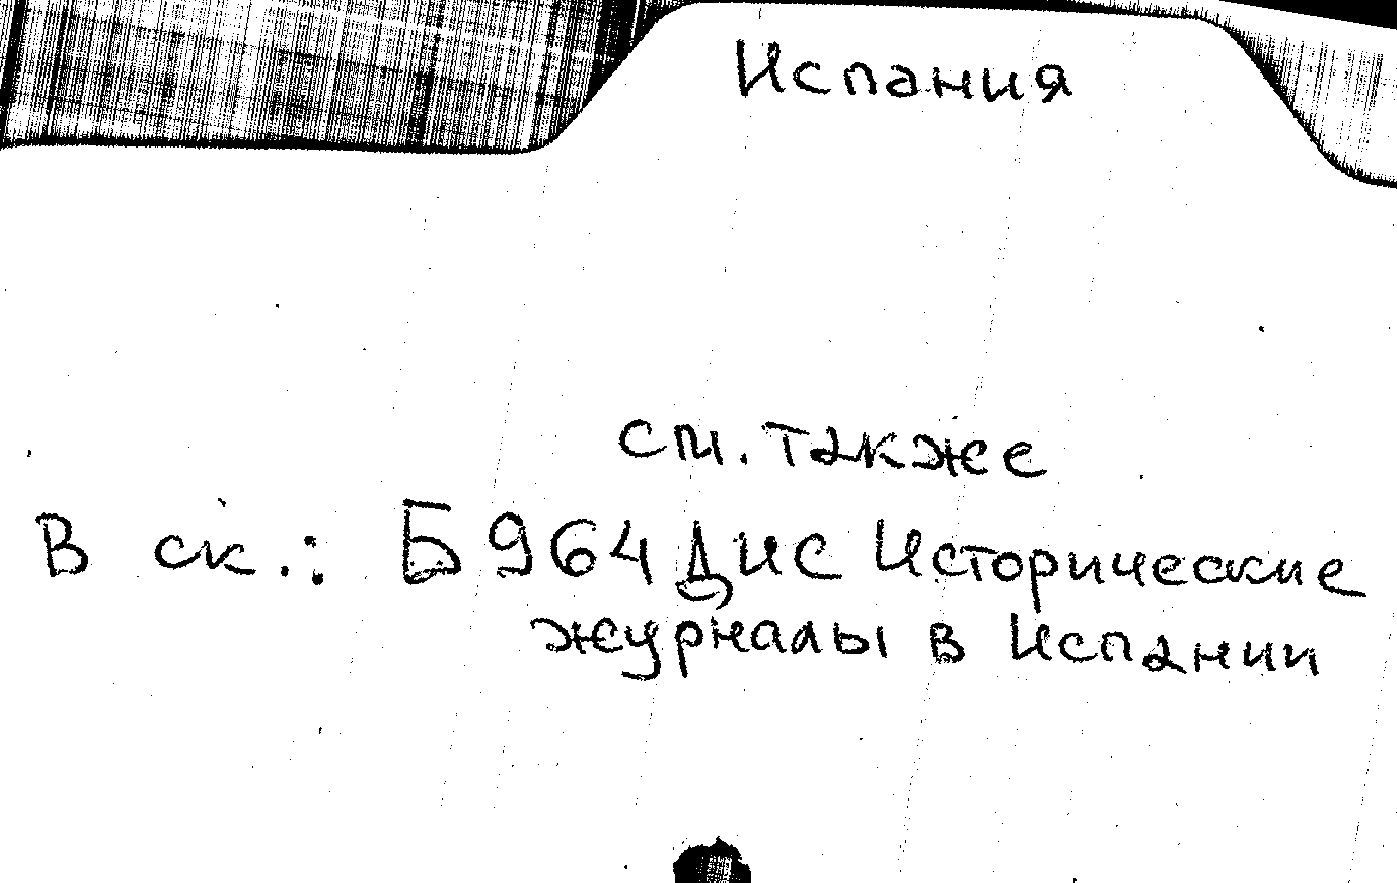 Испания
см. также
В ск.: Б964 Дис Исторические
журналы в Испании